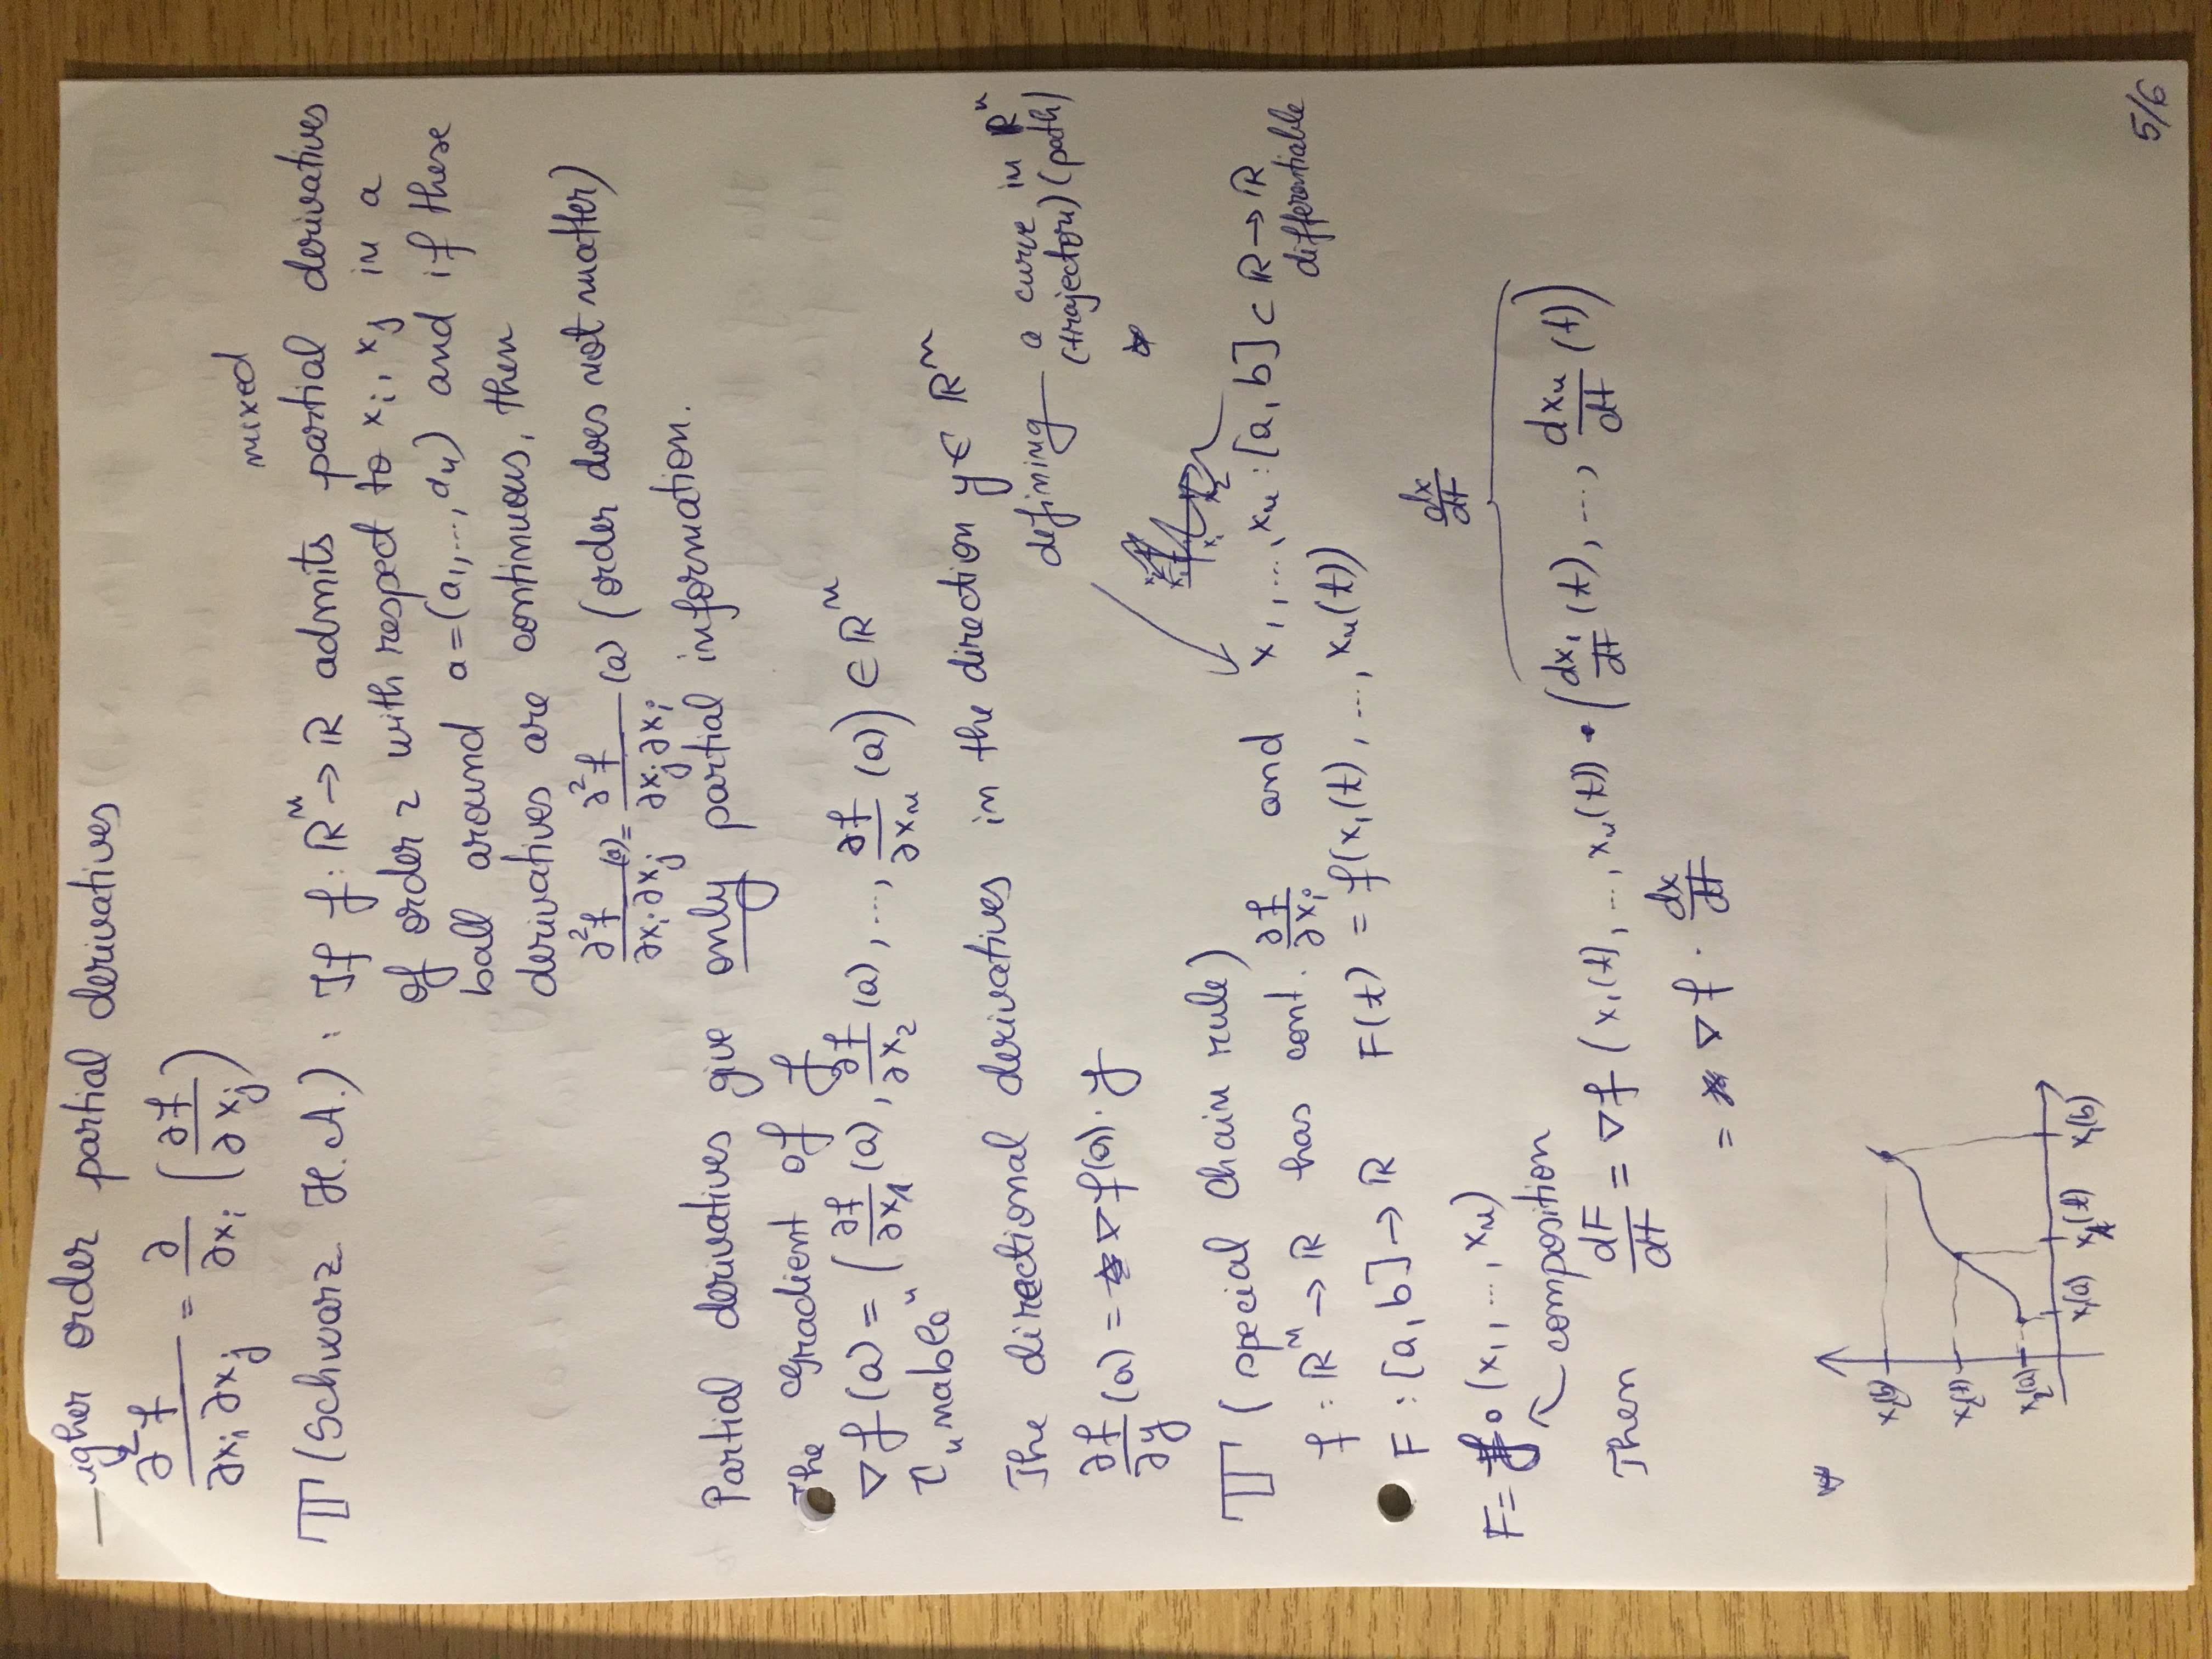 igher order partial derivatives
∂²f/∂xᵢ∂xⱼ = ∂/∂xᵢ (∂f/∂xⱼ)
mixed
T (Schwarz H.A.): If f: ℝⁿ → ℝ admits partial derivatives
of order 2 with respect to xᵢ, xⱼ in a
ball around a=(a₁,...,aₙ) and if these
derivatives are continuous, then
∂²f/∂xᵢ∂xⱼ (a) = ∂²f/∂xⱼ∂xᵢ (a) (order does not matter)
Partial derivatives give only partial information.
The Gradient of f
∇f(a) = (∂f/∂x₁ (a), ∂f/∂x₂ (a), ..., ∂f/∂xₙ (a)) ∈ ℝⁿ
„nabla"
The directional derivatives in the direction y ∈ ℝⁿ
defining a curve in ℝⁿ
(trajectory) (path)
∂f/∂y (a) = ∇f(a) · y
T (special Chain rule)
f: ℝⁿ → ℝ has cont. ∂f/∂xᵢ and x₁,...,xₙ: [a,b] ⊂ ℝ → ℝ
differentiable
F: [a,b] → ℝ F(t) = f(x₁(t), ..., xₙ(t))
dx/dt
F = f ∘ (x₁, ..., xₙ)
composition
Then dF/dt = ∇f (x₁(t), ..., xₙ(t)) · (dx₁/dt (t), ..., dxₙ/dt (t))
= ∇f · dx/dt
x₂(b)
x₂(t)
x₂(a)
x₁(a) x₁(t) x₁(b)
5/6